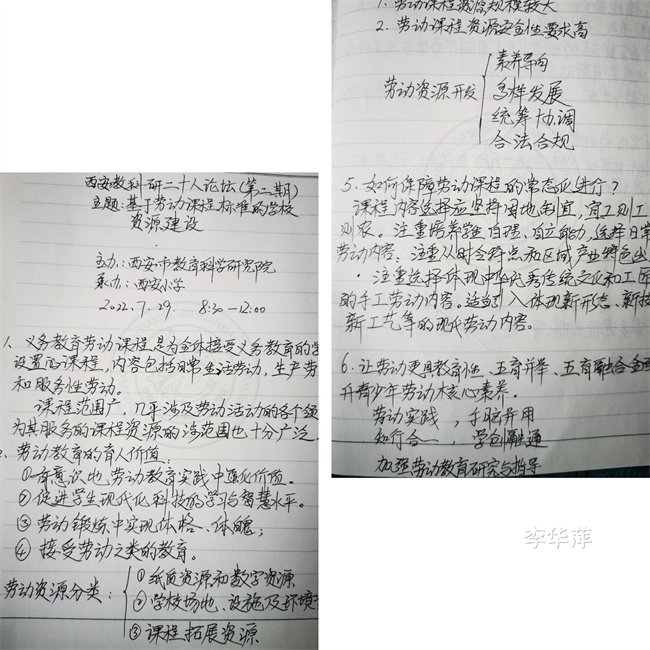 西安教科研二十人论坛(第二期)
主题:基于劳动课程标准的学校
资源建设
主办:西安市教育科学研究院
承办:西安小学
2022.7.29. 8:30—12:00
1、义务教育劳动课程是为全体接受义务教育的学
设置的课程,内容包括日常生活劳动,生产劳
和服务性劳动。
课程范围广,几乎涉及劳动活动的各个领
为其服务的课程资源的涉范围也十分广泛
劳动教育的育人价值:
①有意识地劳动教育实践中强化价值。
②促进学生现代化科技的学习与智慧水平。
③劳动锻炼中实现体格、体魄;
④接受劳动之类的教育。
劳动资源分类:
①纸质资源和数字资源
②学校场地、设施及环境
③课程拓展资源
1.劳动课程资源规模较大
2.劳动课程资源安全性要求高
劳动资源开发
素养导向
多样发展
统筹协调
合法合规
5、如何保障劳动课程的常态化进行?
课程内容选择应坚持因地制宜,宜工则工
则农。注重培养学生自理、自立能力,选择日常
劳动内容、注重从时令特点和区域产业特色出
·注重选择体现中华优秀传统文化和工匠
的手工劳动内容。适当引入体现新形态、新技
新工艺等的现代劳动内容。
6.让劳动更具教育性、五育并举、五育融合全面
升青少年劳动核心素养。
劳动实践,手脑并用
知行合一,学创融通
加强劳动教育研究与指导
李华萍